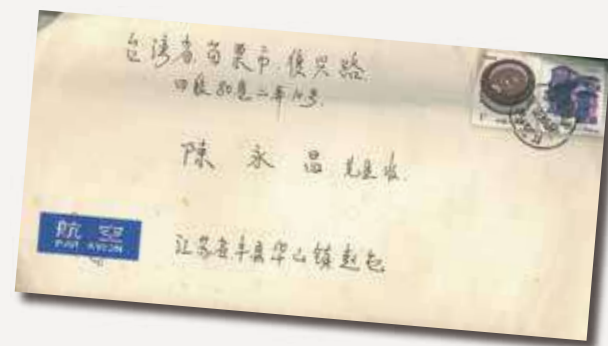 台湾省苗栗市復兴路
四段80巷二弄14号
陈永昌 先生收
航空
PAR AVION
江苏省丰县华山镇赵包